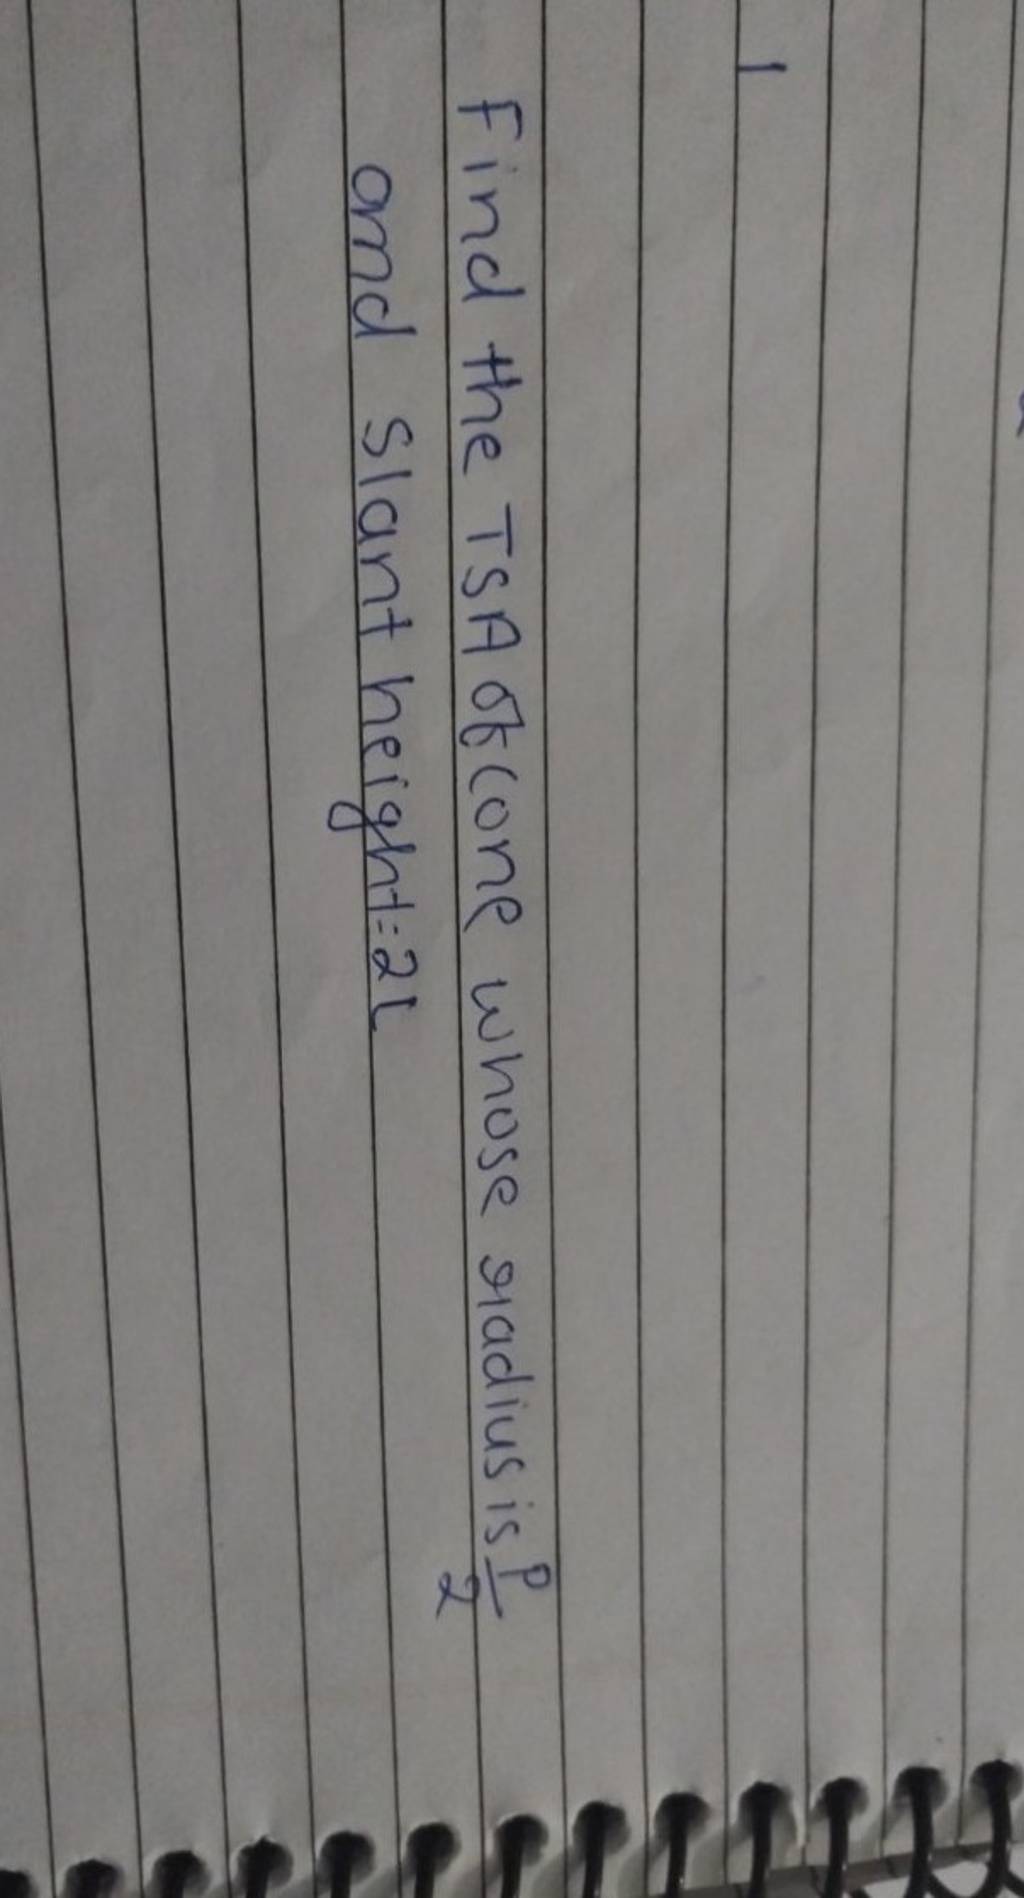 Find the TSA of cone whose radius is P/2
and Slant height = 2l